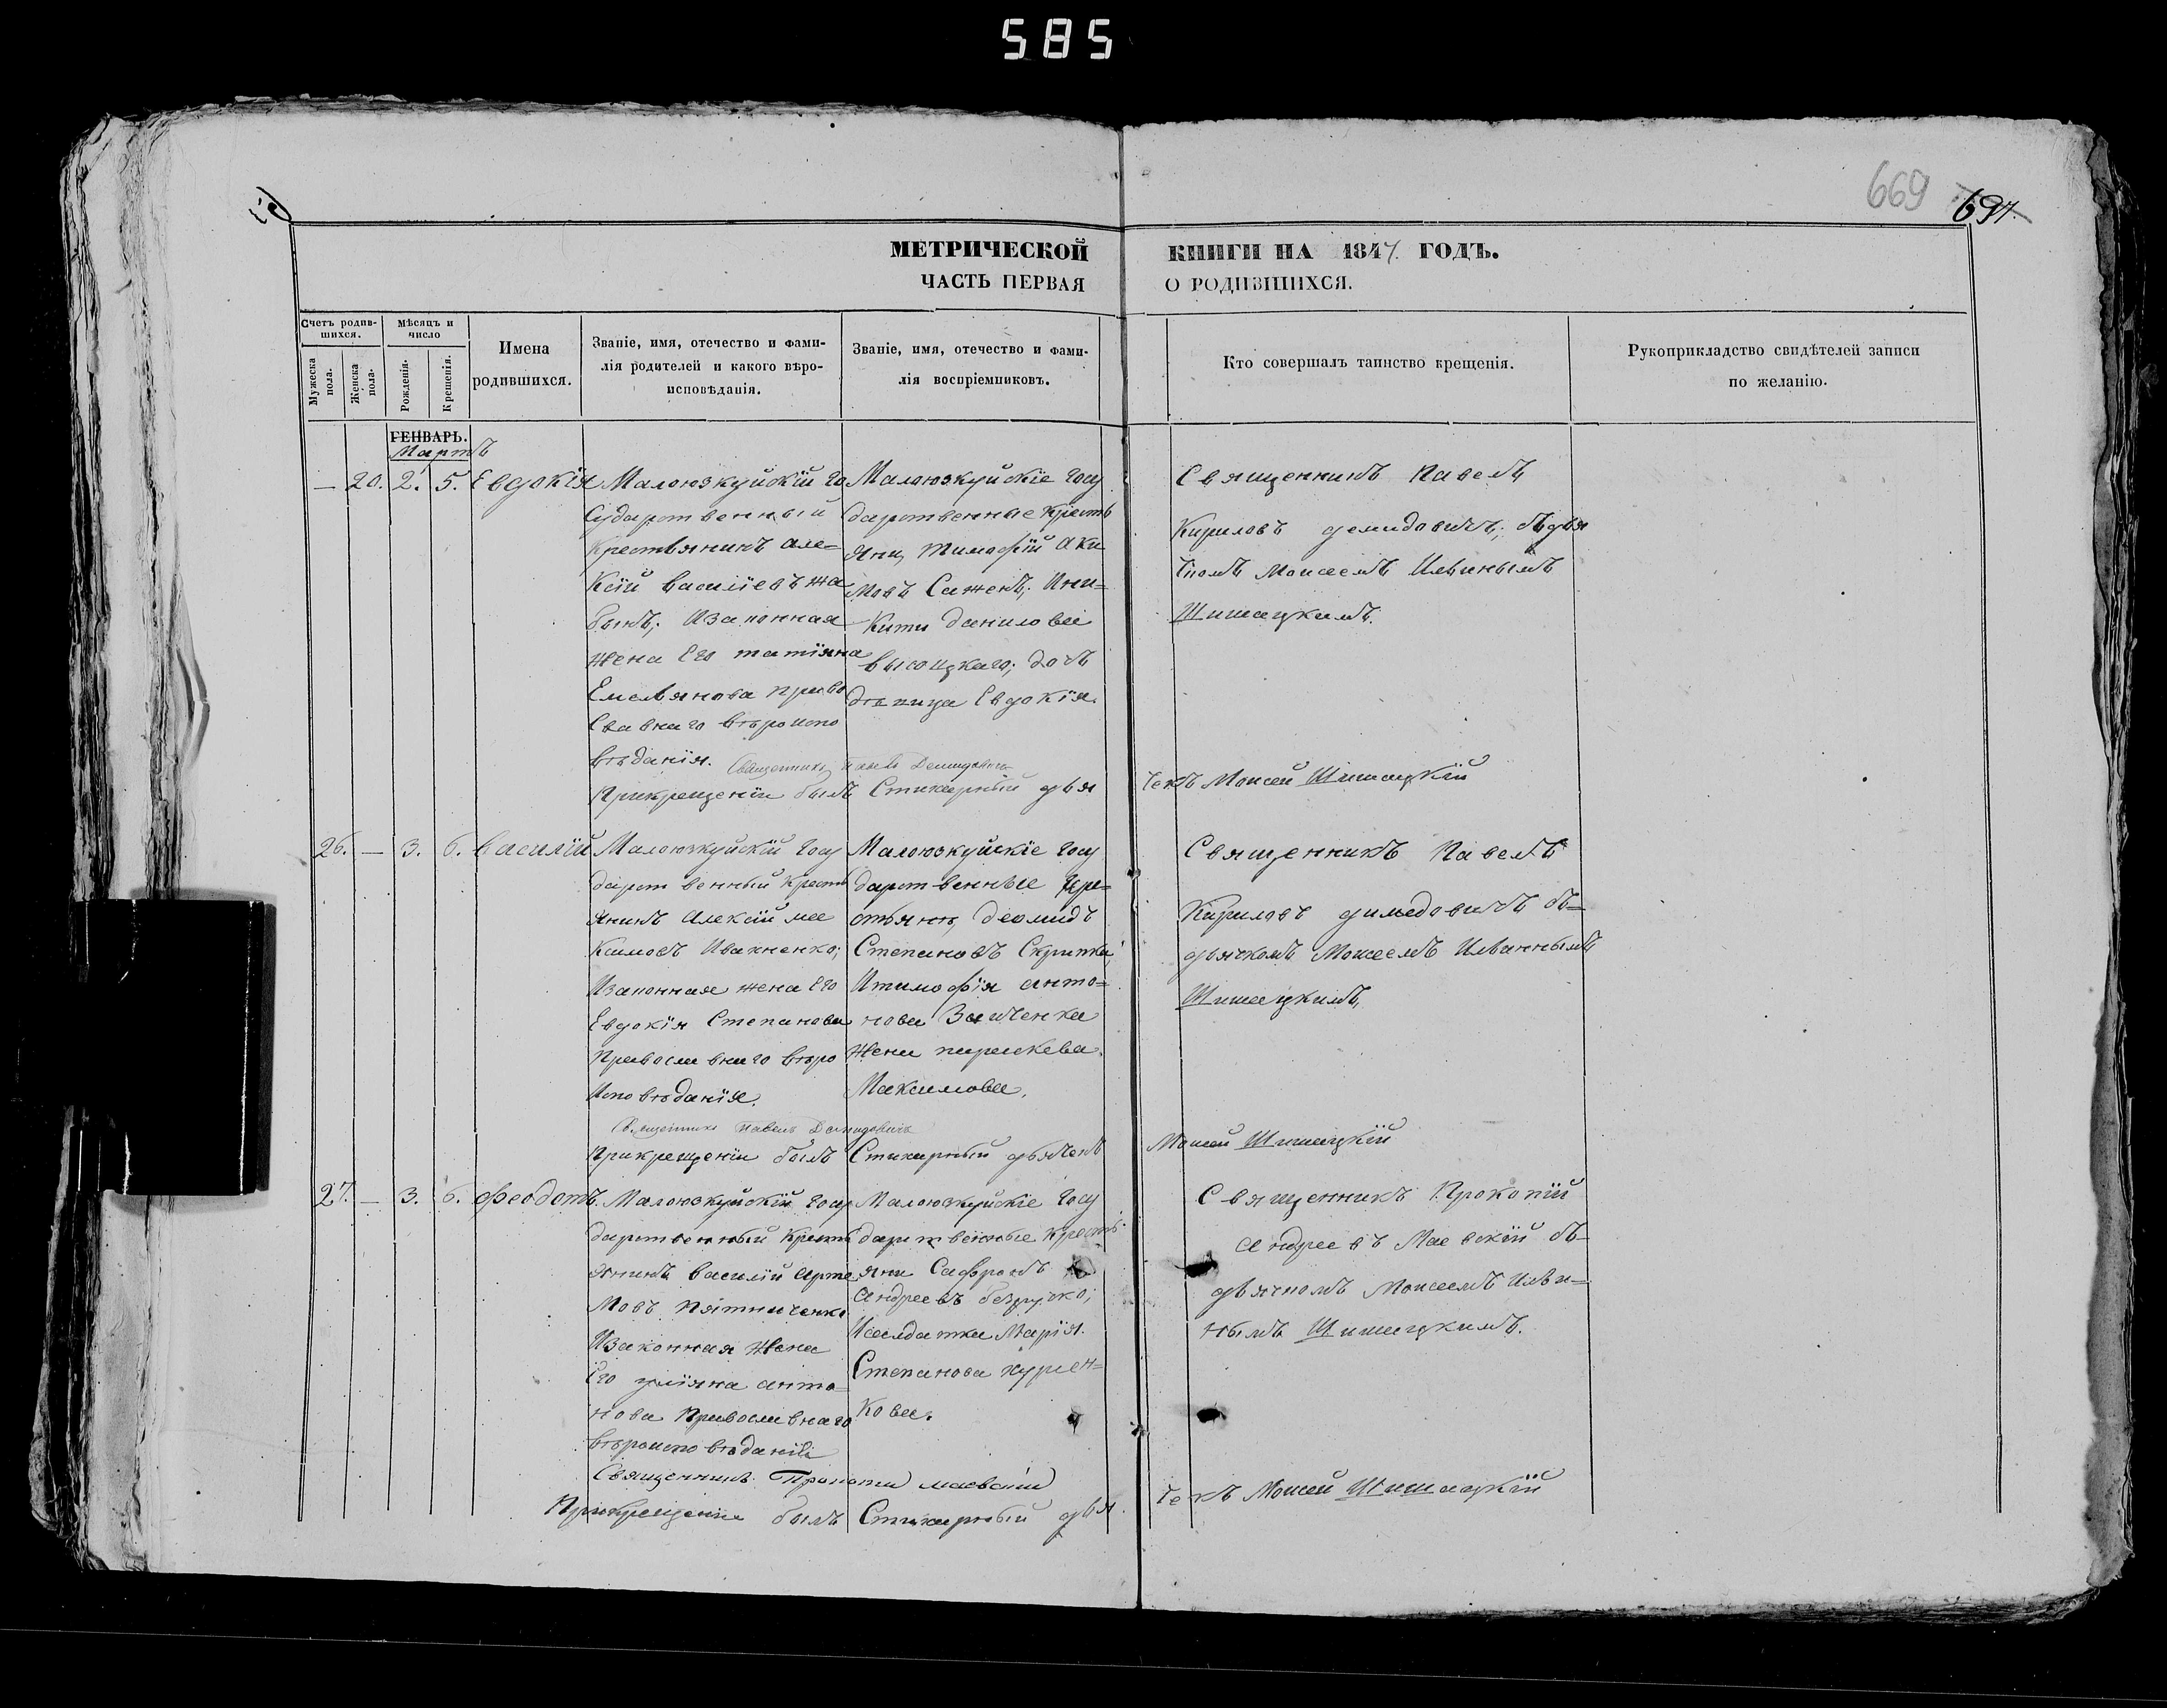 585
669
697.
МЕТРИЧЕСКОЙ КНИГИ НА 1847. ГОДЪ.
ЧАСТЬ ПЕРВАЯ О РОДИВШИХСЯ.
Счетъ родив-
шихся.
Мужеска
пола.
Женска
пола.
Мѣсяцъ и
число
Рожденія.
Крещенія.
Имена
родившихся.
Званіе, имя, отечество и фами-
лія родителей и какого вѣро-
исповѣданія.
Званіе, имя, отечество и фами-
лія воспріемниковъ.
Кто совершалъ таинство крещенія.
Рукоприкладство свидѣтелей записи
по желанію.
ГЕНВАРЬ.
Мартъ
— 20. 2. 5. Евдокія
Малоюзкуйскій го
сударственный
Крестьянинъ Але=
Ксій Василіевъ Жа
бынъ; Изаконная
жена Его татіяна
Емельянова право
Славнаго вѣроиспо
вѣданія.
Малоюзкуйскіе госу
дарственные кресть
яни, Тимофій Аки
мовъ Саженъ; Ини=
Киты данилова
высоцкаго; дочь
дѣвица Евдокія.
Священникъ Павелъ
Кириловъ демидовичъ; съдья
чкомъ Моисеемъ Ильинымъ
Шишацкимъ.
Священникъ Павелъ Демидовичъ
Прикрещеніи былъ Стихарный дья
чекъ Моисей Шишацкій
26. — 3. 6. Василій
Малоюзкуйскій госу
дарственный кресть
янинъ Алексій
Изаконная жена Его
Евдокія Степанова
Православнаго вѣро
Исповѣданія.
Малоюзкуйскіе госу
дарственные кре=
стьяне, деомидъ
Степановъ Скрипка;
Итимофія анто=
нова
жена
Максимова.
Священникъ Павелъ
Кириловъ димедовичъ съ=
дьячкомъ Моисеемъ Ильинымъ
Шишацкимъ,
Священникъ Павелъ Демидовичъ
Прикрещеніи былъ Стихарный дьячекъ
Моисей Шишацкій
27. — 3. 6. Феодотъ.
Малоюзкуйскій госу
дарственный кресть
янинъ Василій арте
мовъ Пятниченко
Изаконная жена
Его уліяна анто=
нова Православнаго
вѣроисповѣданія
Малоюзкуйскіе госу
дарственные кресть
яни Сафронъ
Андреевъ безручко;
Исалдатка Марія.
Степанова
кова.
Священникъ Прокопій
Андреевъ Маевскій съ=
дьячкомъ Моисеемъ Ильи=
нымъ Шишацкимъ.
Священникъ Прокопій Маевскій
Прикрещеніи былъ Стихарный дья
чекъ Моисей Шишацкій